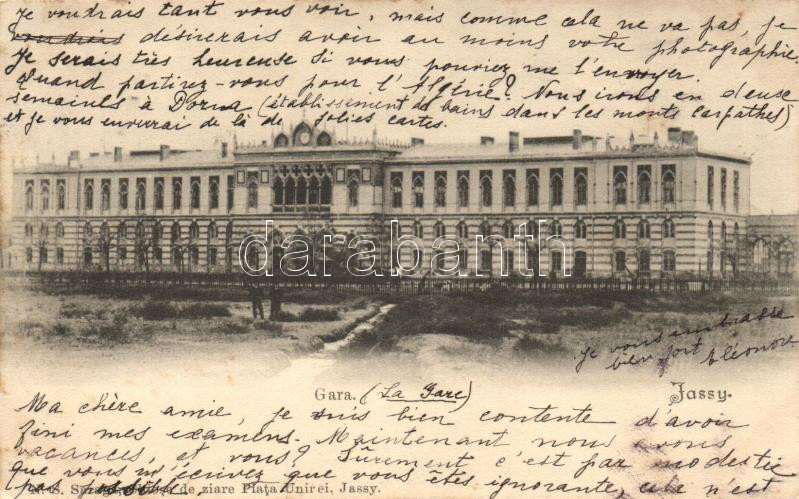 Je voudrais tant vous voir, mais comme cela ne va pas, je
voudrais desirerais avoir au moins votre photographie.
Je serais très heureuse si vous pouviez me l'envoyer.
Quand partirez-vous pour l'Algérie? Nous irons en deuse
semaines à Dorna (établissement de bains dans les monts Carpathes)
et je vous enverrai de là de jolies cartes.
darabanth
je vous embrasse
bien fort Eléonore
Gara. (La Gare) Jassy.
Ma chère amie, je suis bien contente d'avoir
fini mes examens. Maintenant nous avons
vacances, et vous? Sûrement c'est par modestie
que vous m'écrivez que vous êtes ignorante, cela n'est
pas possible
de ziare Piața Unirei, Jassy.